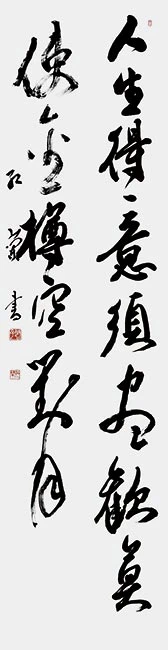 人生得意須盡歡莫
使金樽空對月
書